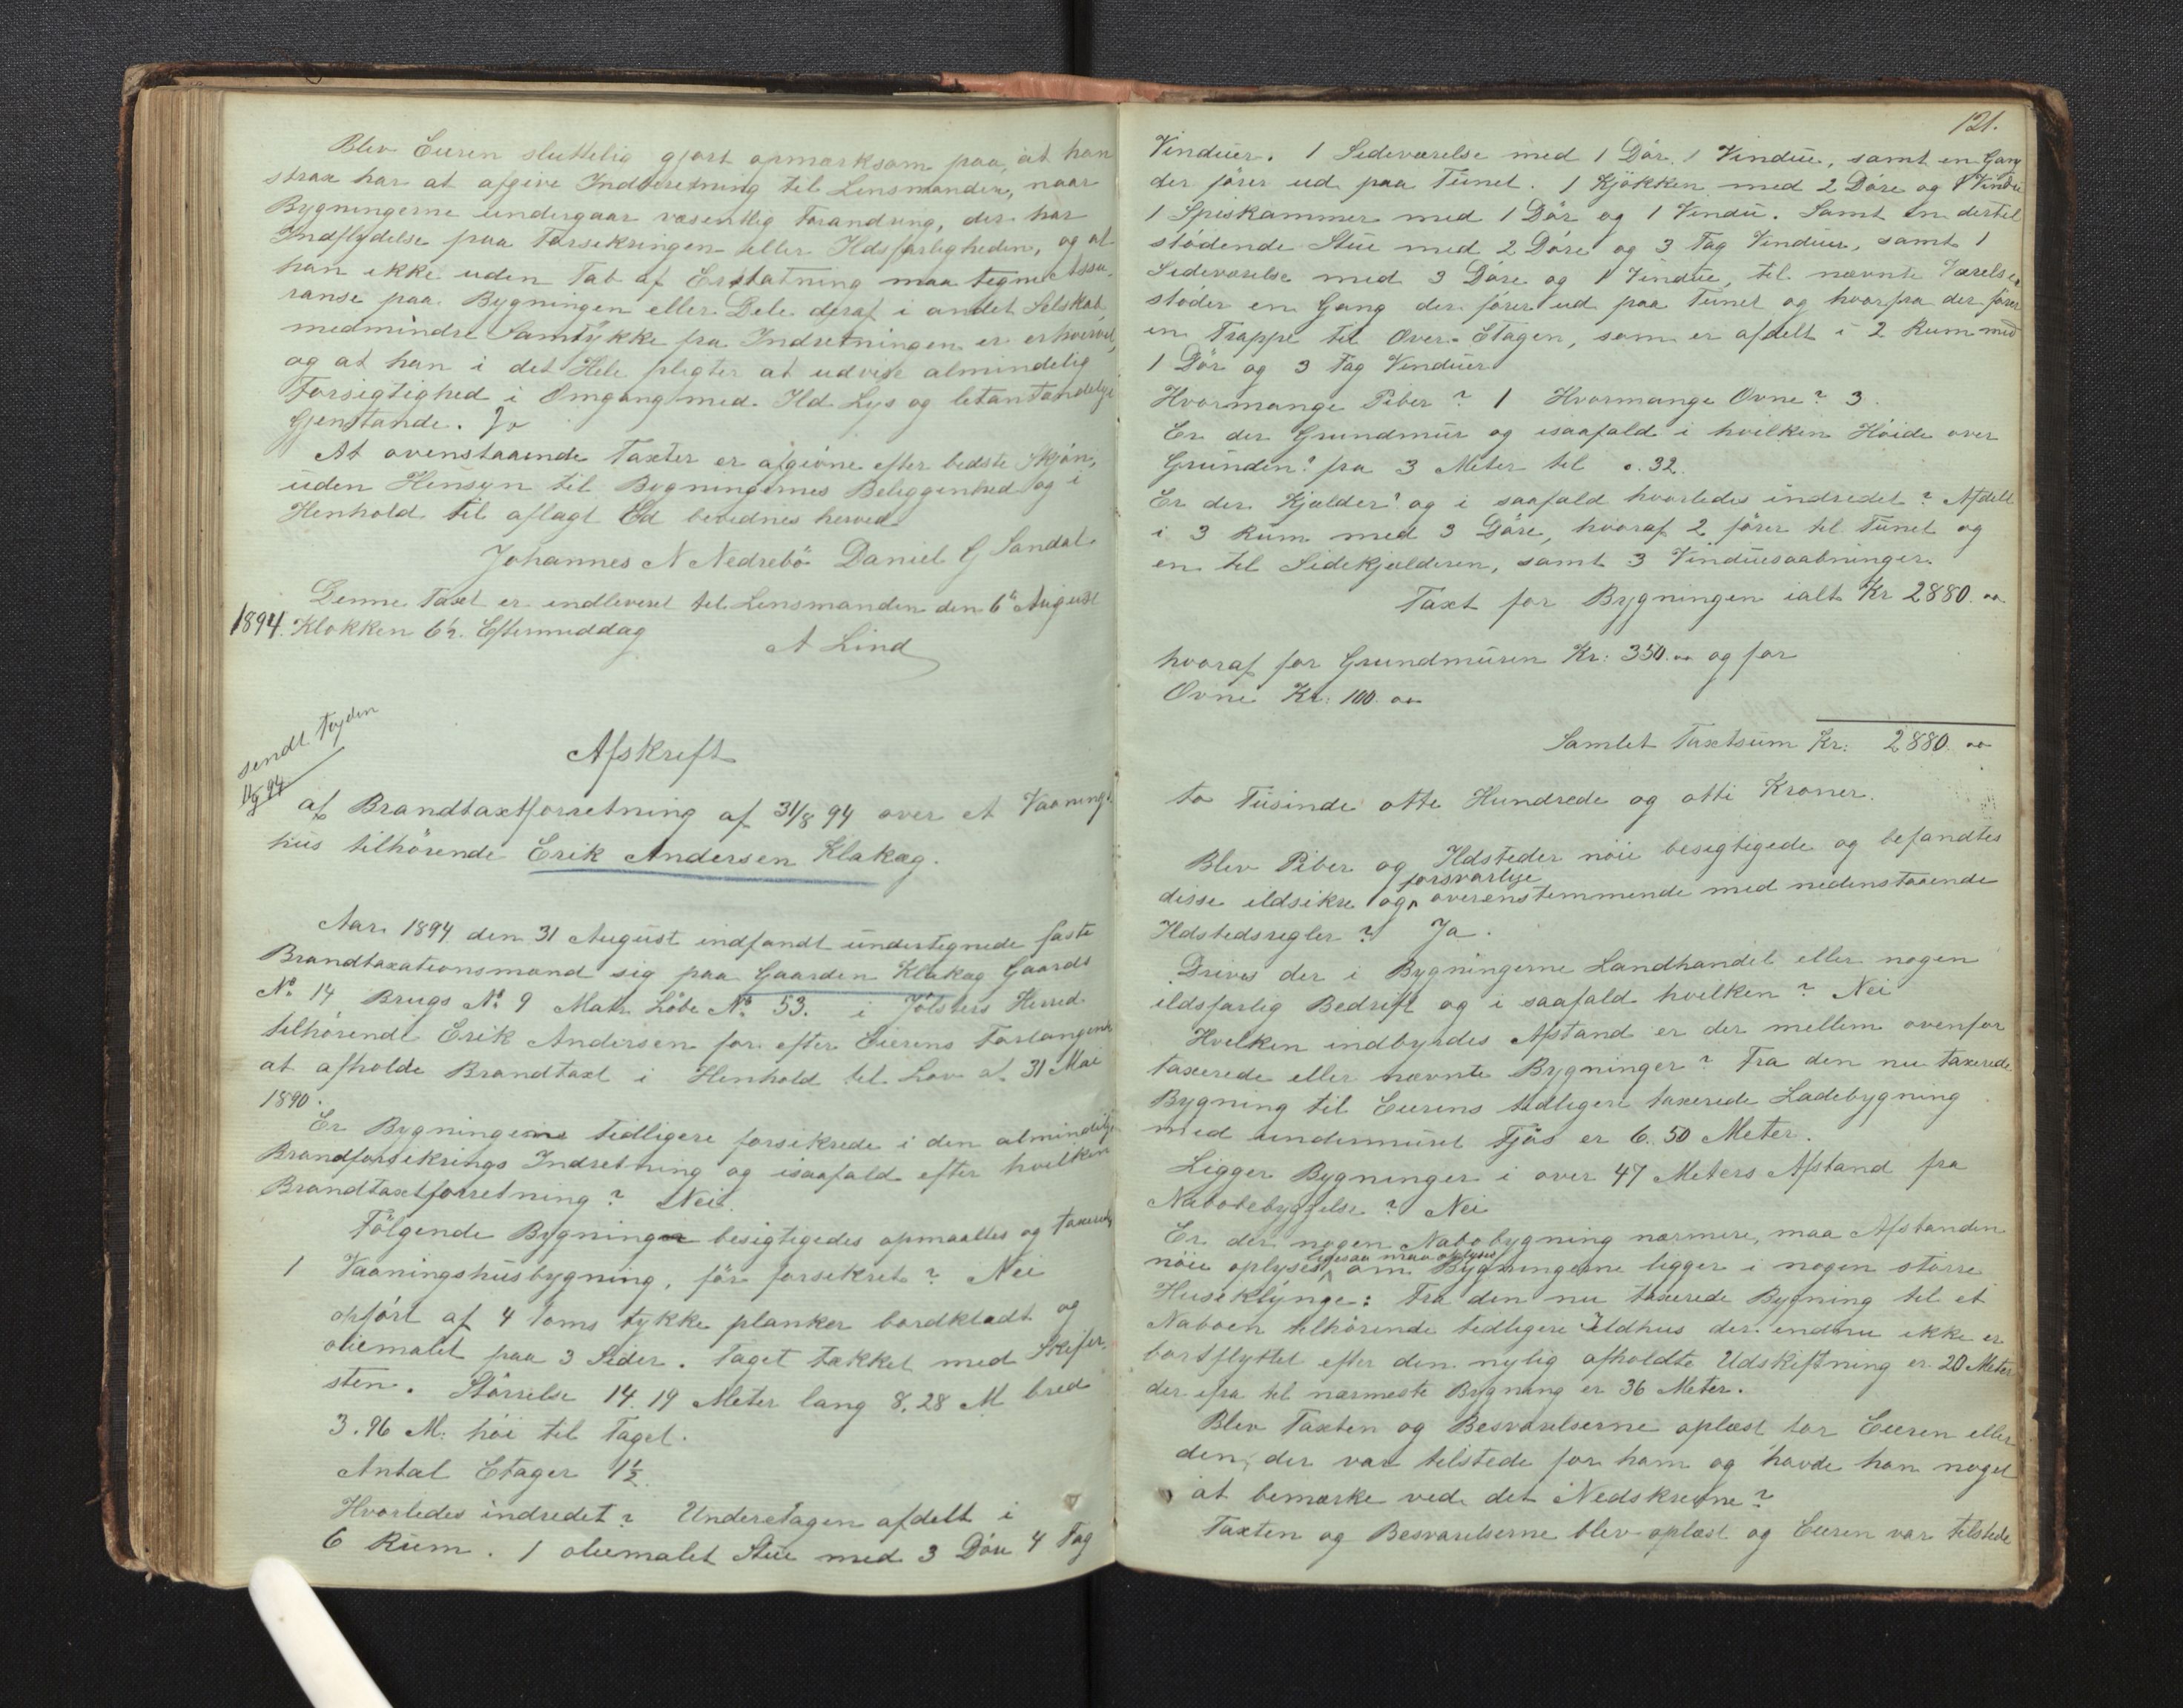 Blev Eieren sluttelig gjort opmærksom paa, at han
strax har at afgive Indberetning til Lensmanden, naar
Bygningerne undergaar væsentlig Forandring, der har
Indflydelse paa Forsekringen eller Ildsfarligheden, og at
han ikke uden Tab af Erstatning maa tegne Assu-
ranse paa Bygningen eller Dele deraf i andet Selskab,
medmindre Samtykke fra Indretningen er erhvervet,
og at han i det Hele pligter at udvise almindelig
Forsigtighed i Omgang med Ild Lys og letantændelige
Gjenstande. Jo
At ovenstaaende Taxter er afgivne efter bedste Skjøn,
uden Hensyn til Bygningernes Beliggenhed og i
Henhold til aflagt Ed bevidnes herved
Johannes N Nedrebö Daniel G Sandal.
Denne Taxt er indleveret til Lensmanden den 6te August
1894. Klokken 6½ Eftermiddag
A Lind
sendt Fogden
11/9 94
Afskrift
af Brandtaxtforretning af 31/8 94 over et Vaanings
hus tilhörende Erik Andersen Klakæg.
Aar 1894 den 31 August indfandt undertegnede faste
Brandtaxationsmænd sig paa Gaarden Klakæg Gaards
No. 14 Brugs No. 9 Matr. Löbe No. 53. i Jölsters Herred
tilhörende Erik Andersen for efter Eierens Forlangende
at afholde Brandtaxt i Henhold til Lov af 31 Mai
1890.
Er Bygningerne tidligere forsikrede i den almindelige
Brandforsikrings Indretning og isaafald efter hvilken
Brandtaxtforretning? Nei.
Fölgende Bygninger besigtigedes opmaaltes og taxeredes
1 Vaaningshusbygning, för forsekret? Nei
opfört af 4 Toms tykke planker bordklædt og
oliemalet paa 3 Sider. Taget tækket med Skifer-
sten. Störrelse 14.19 Meter lang 8.28 M bred
3.96 M: höi til Taget.
Antal Etager 1½.
Hvorledes indredet? Underetagen afdelt i
6 Rum. 1 oliemalet Stue med 3 Döre 4 Fag
121.
Vinduer. 1 Sideværelse med 1 Dör, 1 Vindue, samt en Gang
der förer ud paa Tunet. 1 Kjökken med 2 Döre og 1 Vindu
1 Spiskammer med 1 Dör og 1 Vindu. Samt en dertil
stödende Stue med 2 Döre og 3 Fag Vinduer, samt 1
Sideværelse med 3 Döre og 1 Vindue, til nævnte Værelse
stöder en Gang der förer ud paa Tunet og hvorfra der förer
en Trappe til Over-Etagen, som er afdelt i 2 Rum med
1 Dör og 3 Fag Vinduer
Hvormange Piber? 1 Hvormange Ovne? 3.
Er der Grundmur og isaafald i hvilken Höide over
Grunden? fra 3 Meter til 0.32.
Er der Kjælder? og i saafald hvorledes indredet? Afdelt
i 3 Rum med 3 Döre, hvoraf 2 förer til Tunet og
en til Sidekjælderen, samt 3 Vinduesaabninger.
Taxt for Bygningen ialt Kr 2880.00
hvoraf for Grundmuren Kr: 350.00 og for
Ovne Kr: 100.00
Samlet Taxtsum Kr: 2880.00
to Tusinde otte Hundrede og otti Kroner.
Blev Piber og Ildsteder nöie besigtigede og befandtes
disse ildsikre og forsvarlige overenstemmende med nedenstaaende
Ildstedsregler? Ja.
Drives der i Bygningerne Landhandel eller nogen
ildsfarlig Bedrift og i saafald hvilken? Nei
Hvilken indbyrdes Afstand er der mellem ovenfor
taxerede eller nævnte Bygninger? Fra den nu taxerede
Bygning til Eierens tidligere taxerede Ladebygning
med undermuret Fjös er 6.50 Meter.
Ligger Bygninger i over 47 Meters Afstand fra
Nabobebyggelse? Nei
Er der nogen Nabobygning nærmere, maa Afstanden
nöie oplyses, ligesaa maa oplyses om Bygningerne ligger i nogen större
Huseklynge: Fra den nu taxerede Bygning til et
Naboen tilhörende tidligere Ildhus der endnu ikke er
bortflyttet efter den nylig afholdte Udskiftning er 20 Meter
der ifra til nærmeste Bygning er 36 Meter.
Blev Taxten og Besvarelserne oplæst for Eieren eller
den, der var tilstede for ham og havde han noget
at bemærke ved det Nedskrevne?
Taxten og Besvarelserne blev oplæst og Eieren var tilstede